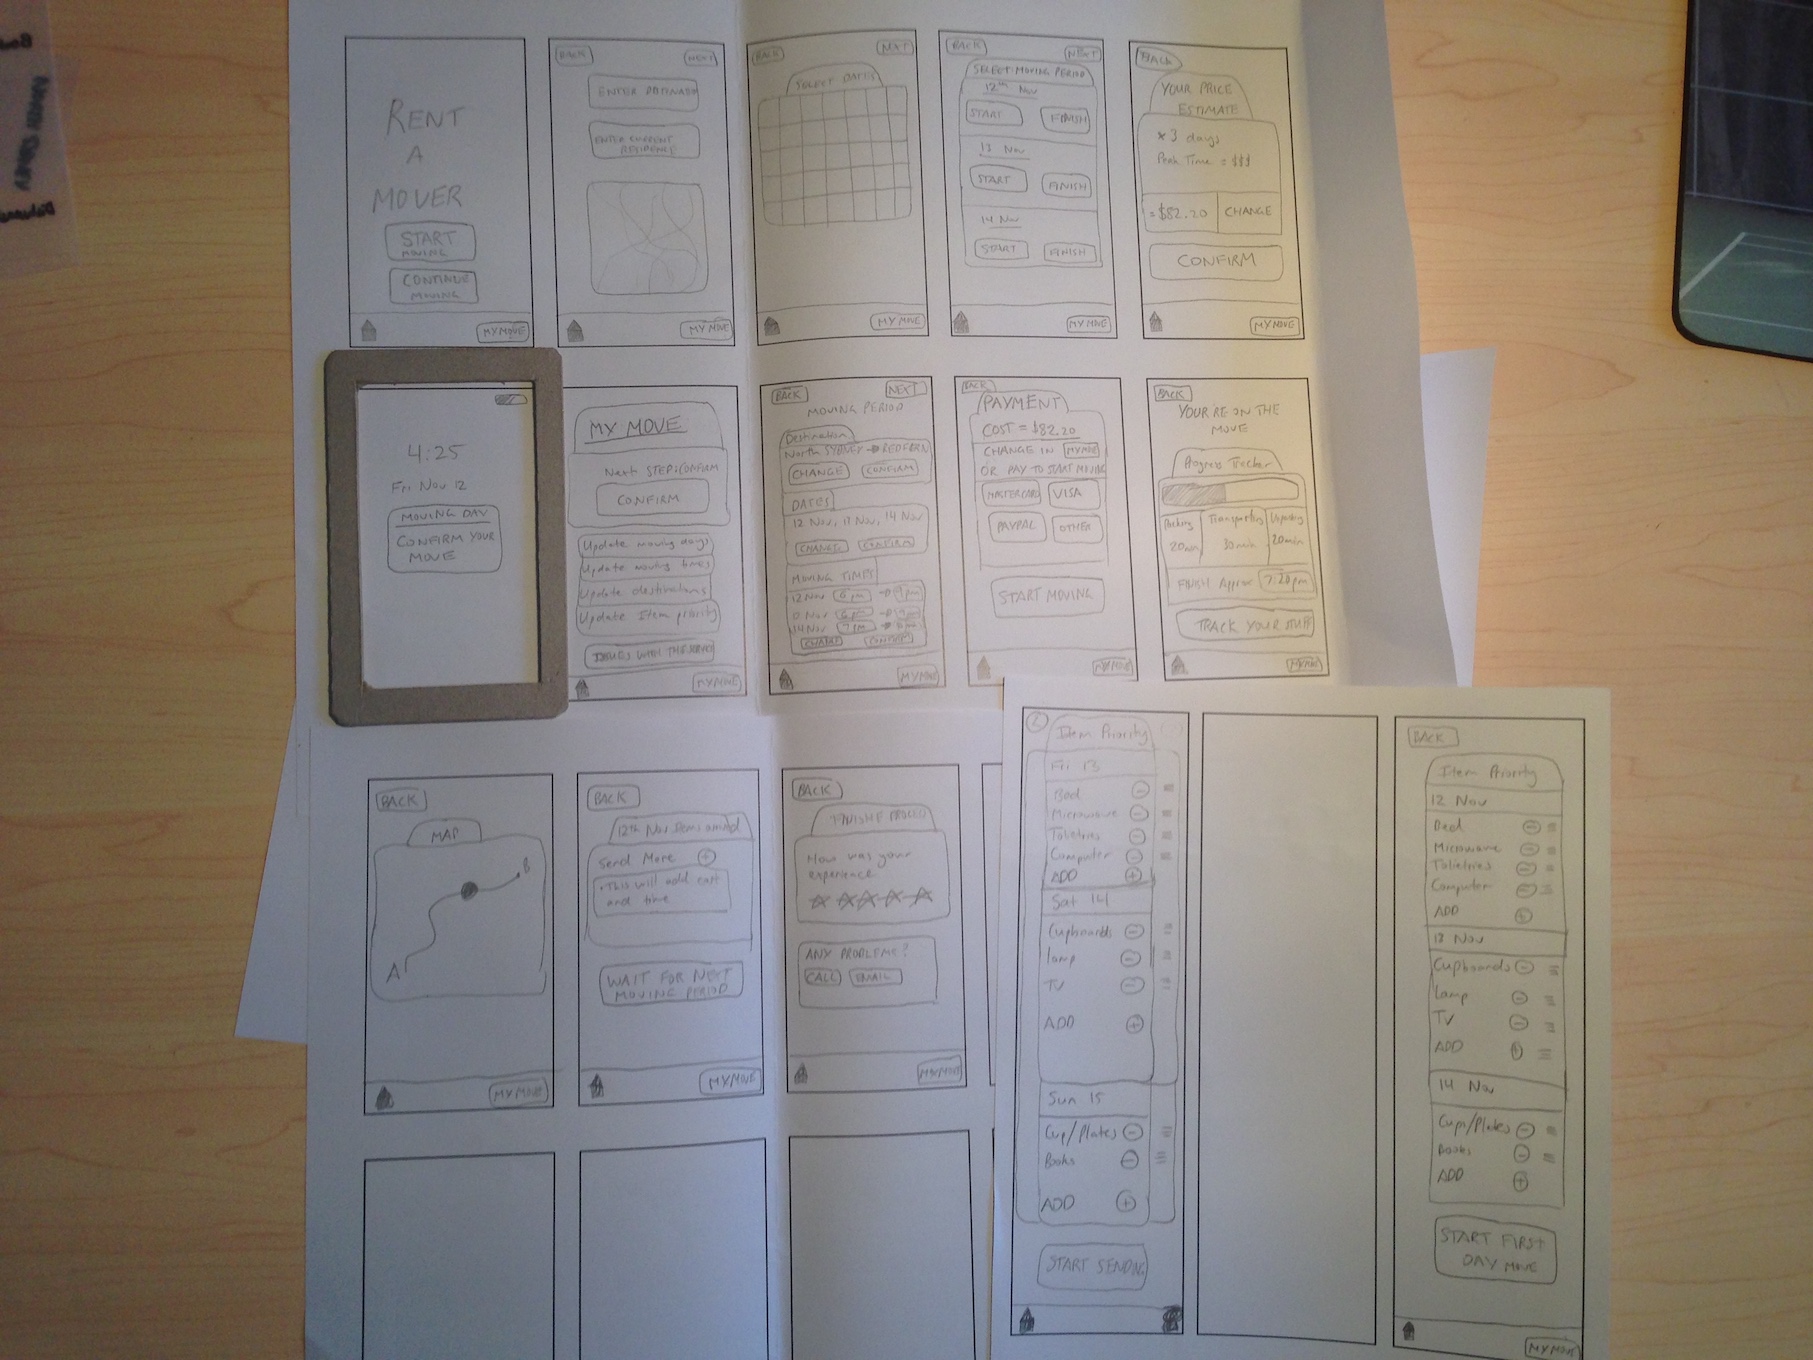 RENT
A
MOVER
START
MOVING
CONTINUE
MOVING
MY MOVE
BACK
NEXT
ENTER CURRENT
RESIDENCE
MY MOVE
BACK
NXT
SELECT DATES
MY MOVE
BACK
NEXT
SELECT MOVING PERIOD
12th Nov
START
FINISH
13 Nov
START
FINISH
14 Nov
START
FINISH
MY MOVE
BACK
YOUR PRICE
ESTIMATE
* 3 days
Peak Time = $$$
= $82.20
CHANGE
CONFIRM
MY MOVE
4:25
Fri Nov 12
MOVING DAY
CONFIRM YOUR
MOVE
MY MOVE
Next STEP: CONFIRM
CONFIRM
Update moving days
Update moving times
Update destinations
Update Item priority
ISSUES WITH THE
MY MOVE
BACK
NEXT
MOVING PERIOD
Destination
North SYDNEY → REDFERN
CHANGE
CONFIRM
DATES
12 Nov, 13 Nov, 14 Nov
CHANGE
CONFIRM
MOVING TIMES
12 Nov 6pm → 9pm
14 Nov 7pm
MY MOVE
BACK
PAYMENT
COST = $82.20
CHANGE IN MYMOVE
OR PAY TO START MOVING
MASTERCARD
VISA
PAYPAL
OTHER
START MOVING
MYMOVE
BACK
YOUR'RE ON THE
MOVE
Progress Tracker
Packing
Transporting
20min
30min
20min
FINISH Approx 7:20pm
TRACK YOUR STUFF
MYMOVE
BACK
MAP
A
B
MY MOVE
BACK
12th Nov Items arrived
Send More +
• This will add cost
and time
WAIT FOR NEXT
MOVING PERIOD
MY MOVE
BACK
How was your
experience
ANY PROBLEMS?
CALL
EMAIL
MYMOVE
Item Priority
Fri 13
Bed
Microwave
Toiletries
Computer
ADD
Sat 14
Cupboards
lamp
TV
ADD
Sun 15
Cup/Plates
Books
ADD
START SENDING
BACK
Item Priority
12 Nov
Bed
Microwave
Toiletries
Computer
ADD
13 Nov
Cupboards
Lamp
TV
ADD
14 Nov
Cups/Plates
Books
ADD
START FIRST
DAY MOVE
MYMOVE